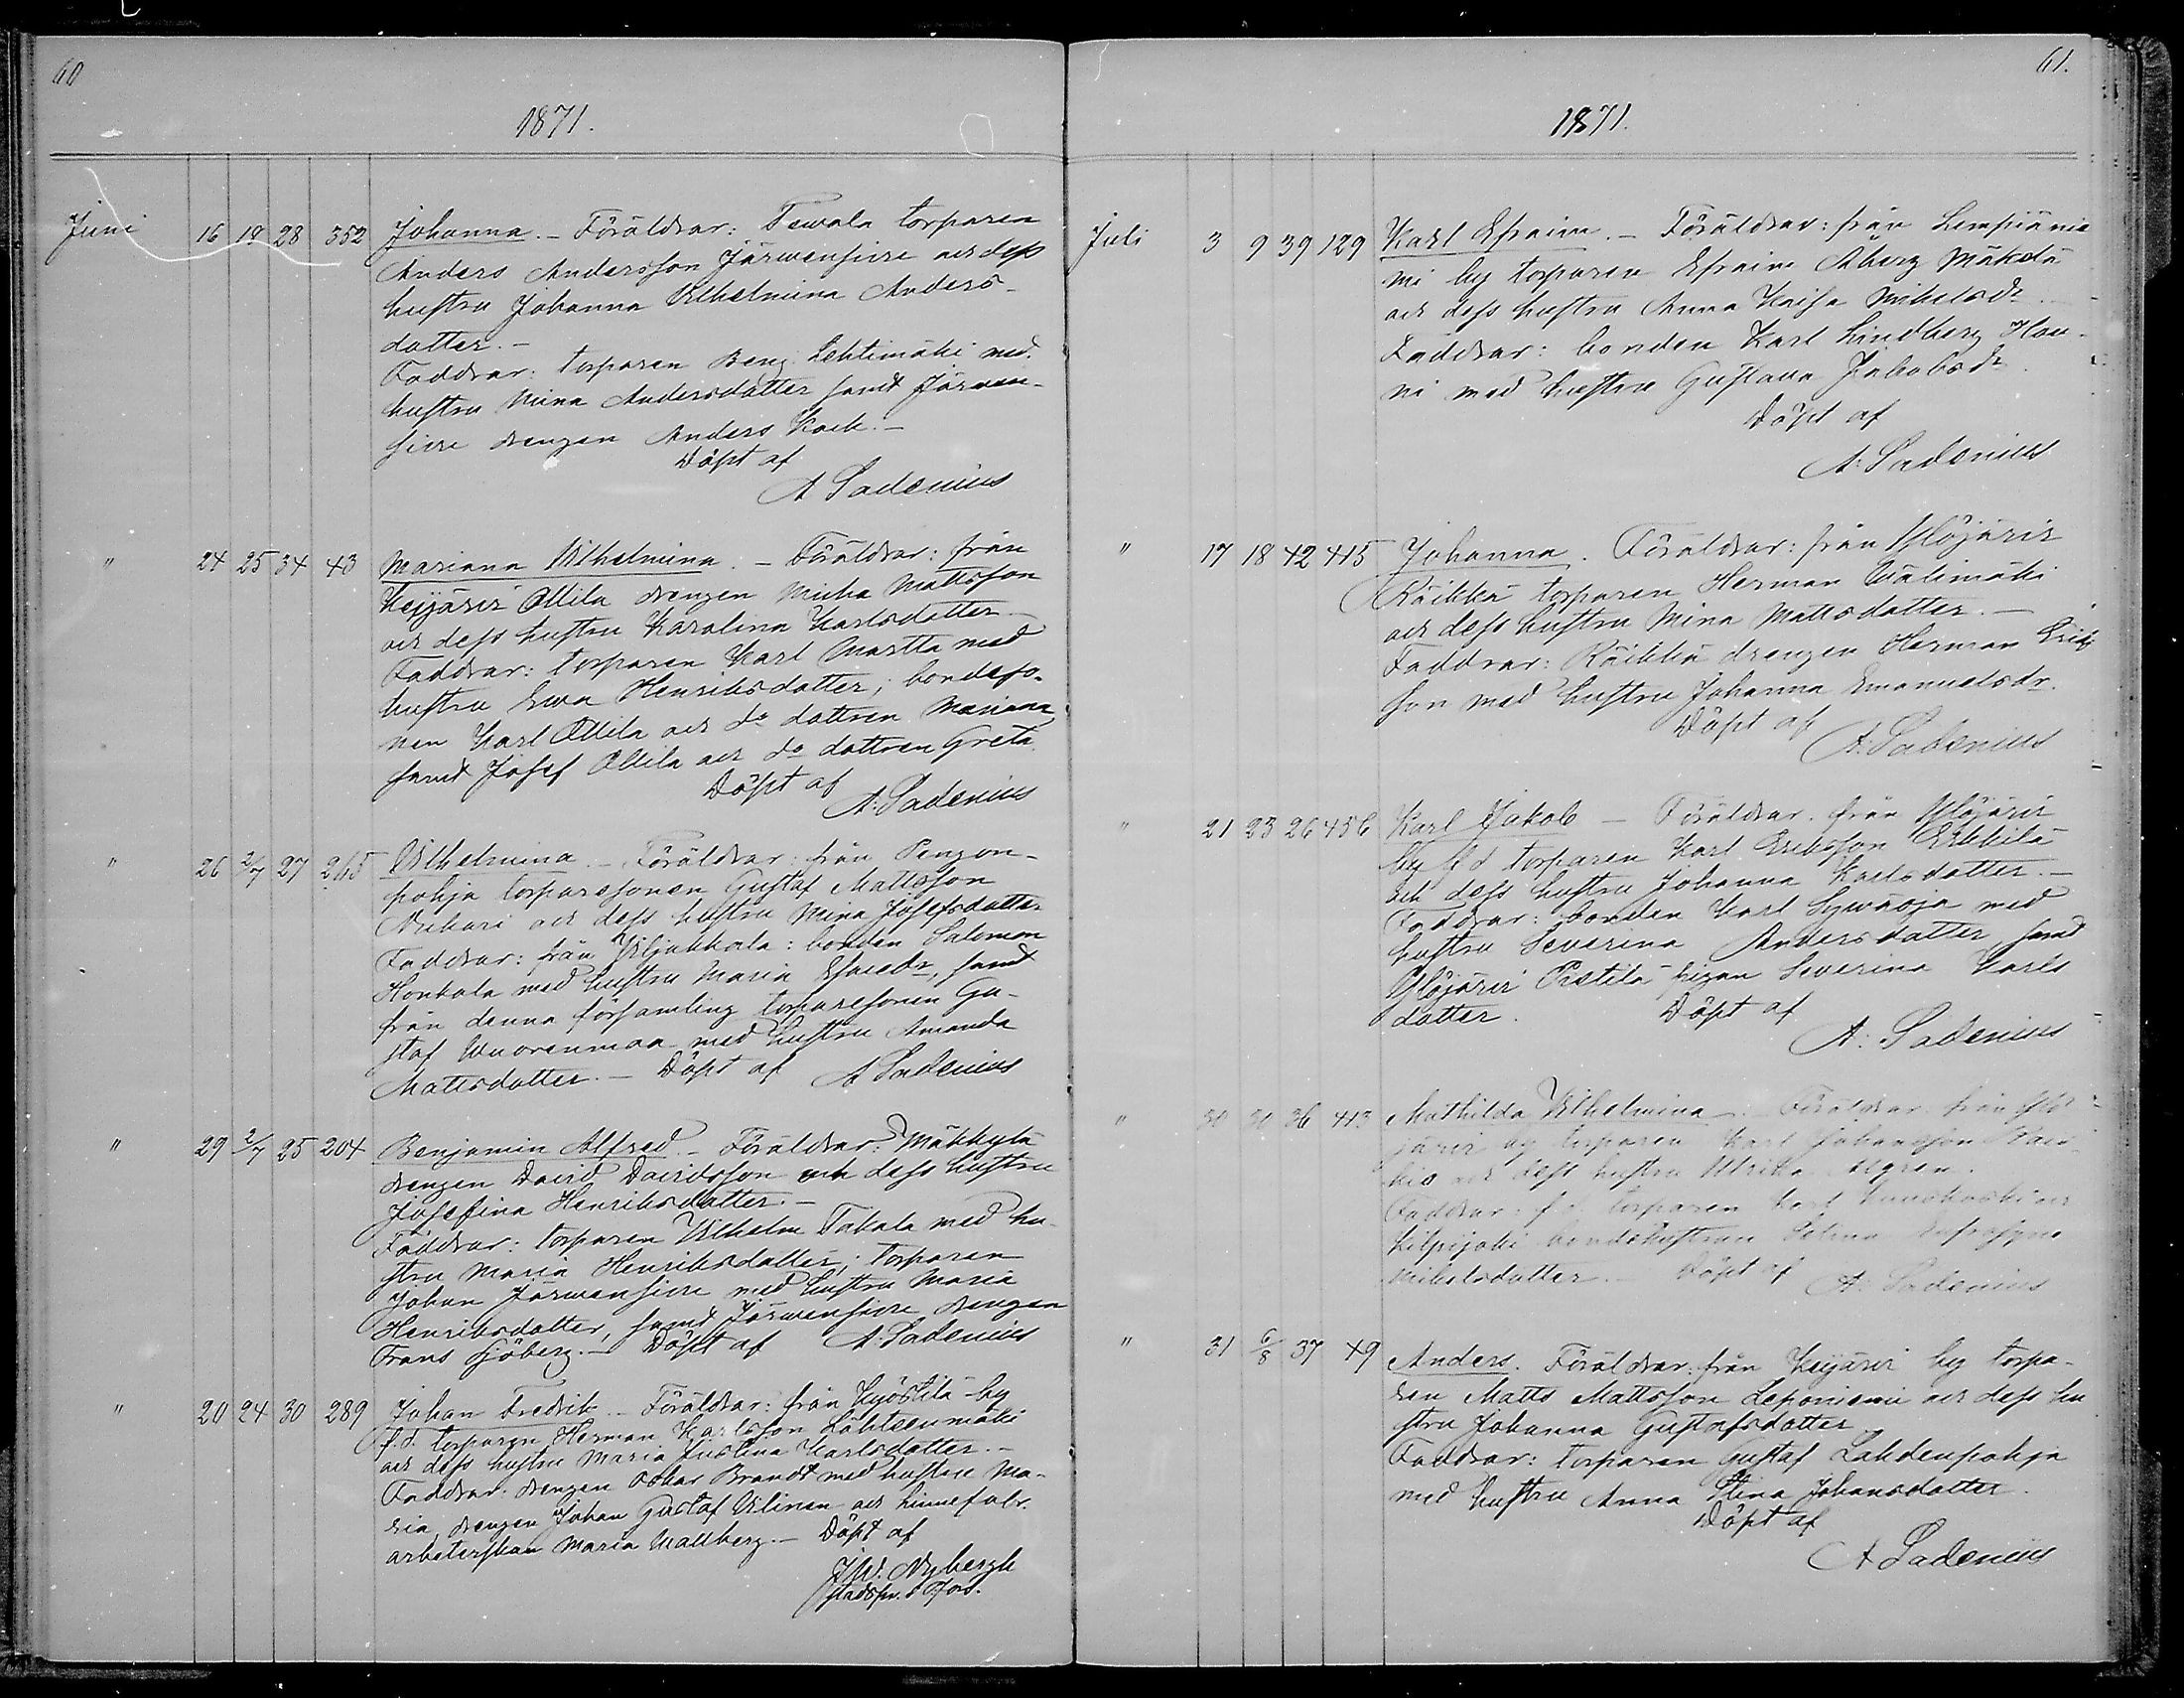 60
1871.
Juni 16 18 28 352 Johanna. – Föräldrar: Tewala torparen
Anders Andersson Järwensiwu och dess
hustru Johanna Wilhelmina Anders-
dotter. –
Faddrar: torparen Benj. Lehtimäki med
hustru Mina Andersdotter samt Järwen-
siwu drengen Anders Kock. –
Döpt af
A Ladenius
" 24 25 34 43 Mariana Wilhelmina. – Föräldrar: från
Keijärvi Ollila drengen Micke Mattsson
och dess hustru Karolina Karlsdotter
Faddrar: torparen Karl Martta med
hustru Ewa Henriksdotter; bondeso-
nen Karl Ollila och do dottren Mariana
samt Josef Ollila och do dottren Greta.
Döpt af
A: Ladenius
" 26 2/7 27 265 Wilhelmina. – Föräldrar: från Pengon-
pohja torparesonen Gustaf Mattsson
och dess hustru Mina Josefsdotter
Faddrar: från Wiljakkala: bonden Salomon
Honkala med hustru Maria Esaiedr, samt
från denna församling torparesonen Gu-
staf Wuorenmaa med hustru Amanda
Mattsdotter. – Döpt af A Ladenius
" 29 2/7 25 204 Benjamin Alfred. – Föräldrar: Mäkkylä
drengen David Davidsson och dess hustru
Josefina Henriksdotter. –
Faddrar: torparen Wilhelm Takala med hu-
stru Maria Henriksdotter; torparen
Johan Järwensiwu med hustru Maria
Henriksdotter, samt Järwensiwu drengen
Frans Sjöberg. – Döpt af A: Ladenius
" 20 24 30 289 Johan Fredrik. – Föräldrar: från Kyöstilä by
f.d. torparen Herman Karlsson Lähteenmäki
och dess hustru Maria Justina Karlsdotter. –
Faddrar: drengen Oskar Brandt med hustru Ma-
ria, drengen Johan Gustaf Wilinen och linnefabr.
arbeterskan Maria Wallberg. – Döpt af
J.W. Nybergh
61.
1871.
Juli 3 9 39 129 Karl Efraim. – Föräldrar: från Lempiänie
mi by torparen Efraim Åberg Mäkelä
och dess hustru Anna Kaisa Mikelsdr. –
Faddrar: bonden Karl Lindberg Hau-
ni med hustru Gustava Jakobsdr.
Döpt af
A: Ladenius
" 17 18 42 415 Johanna. Föräldrar: från Ylöjärvi
Räikkä torparen Herman Wälimäki
och dess hustru Mina Mattsdotter. –
Faddrar: Räikkä drengen Herman Eriks
son med hustru Johanna Emanuelsdr.
Döpt af
A: Ladenius
" 21 23 26 456 Karl Jakob – Föräldrar. från Ylöjärvi
by f.d torparen Karl Eriksson Erkkilä
och dess hustru Johanna Karlsdotter. –
Faddrar: bonden Karl Sywäoja med
hustru Severina Andersdotter samt
Ylöjärvi Pietilä pigan Severina Karls
dotter. Döpt af
A: Ladenius
" 30 31 36 413 Mathilda Wilhelmina. Föräldrar från Ylö-
järvi by torparen Karl Johansson
och dess hustru Ulrika Algren.
Faddrar: f.d. torparen Karl
Kilpijoki bondehustrun Selma Eufrosyne
Mikelsdotter. – Döpt af A: Ladenius
" 31 6/8 37 49 Anders. Föräldrar: från Keijärvi by torpa-
ren Matts Mattsson Leponiemi och dess hu
stru Johanna Gustafsdotter
Faddrar: torparen Gustaf Lahdenpohja
med hustru Anna Stina Johansdotter.
Döpt af
A Ladenius